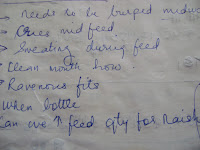 needs to be burped
> Cries mid feed
> Sweating during feed
> Clean mouth how.
> Ravenous fits
when bottle
Can we ↑ feed qty for